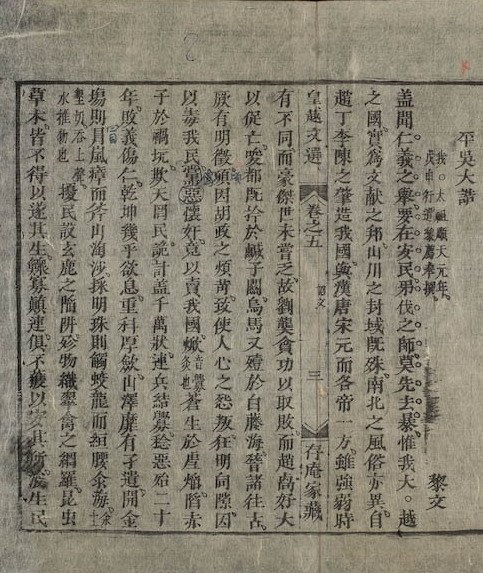 平吳大誥
我。太祖順天元年。
戊申行遣黎薦奉撰
黎文
蓋聞仁義之舉要在安民弔伐之師莫先去暴惟我大。越
之國實爲文献之邦山川之封域既殊南北之風俗亦異自
趙丁李陳之肇造我國與漢唐宋元而各帝一方雖強弱時
皇越文選 卷之五 誥文 三 存庵家藏
有不同而豪傑世未嘗乏故劉龔貪功以取敗而趙卨好大
以促亡唆都既擒於鹹子關烏馬又殪於白藤海嵇諸往古
厥有明徵頃因胡政之煩苛致使人心之怨叛狂明向隙因
以毒我民黨惡懷奸竟以賣我國爊蒼生於虐焰陷赤
子於禍坑欺天罔民詭計蓋千萬狀連兵結釁稔惡殆二十
年敗義傷仁乾坤幾乎欲息重科厚歛山澤靡有孑遺開金
塲則冒嵐瘴而斧山淘沙採明珠則觸蛟龍而絙腰汆海汆土
墾切吞上聲水推物也擾民設玄鹿之陷阱殄物織翠禽之網羅昆虫
草木皆不得以遂其生鰥寡顛連俱不獲以安其所浚生民